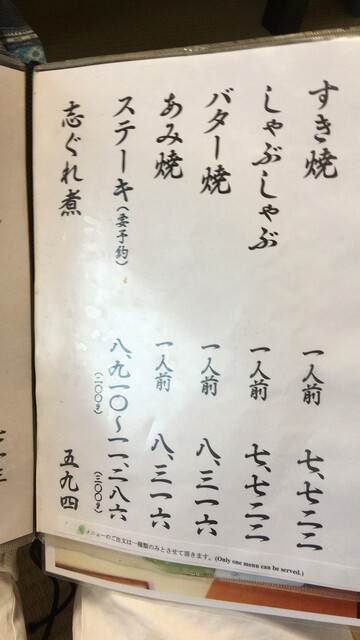 すき焼 一人前 七、七二二
しゃぶしゃぶ 一人前 七、七二二
バター焼 一人前 八、三一六
あみ焼 一人前 八、三一六
ステーキ(要予約) 八、九一〇〜一一、二八六
(二〇〇g) (三〇〇g)
志ぐれ煮 五九四
メニューのご注文は一種類のみとさせて頂きます。(Only one menu can be served.)